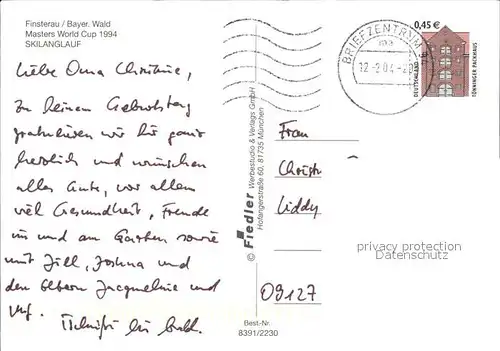 Finsterau / Bayer. Wald
Masters World Cup 1994
SKILANGLAUF
Liebe Oma Christine,
zu deinem Geburtstag
gratulieren wir dir ganz
herzlich und wünschen
alles Gute, vor allem
viel Gesundheit, Freude
im und am Garten sowie
mit Jill, Joshua und
den Eltern Jacqueline und
bis bald.
© Fiedler Werbestudio & Verlags GmbH
Hofangerstraße 60, 81735 München
Best-Nr.
8391/2230
BRIEFZENTRUM
12.-2.04.-20
0,45 €
DEUTSCHLAND
TÖNNINGER PACKHAUS
Frau
Christi
Liddy
09127
privacy protection
Datenschutz